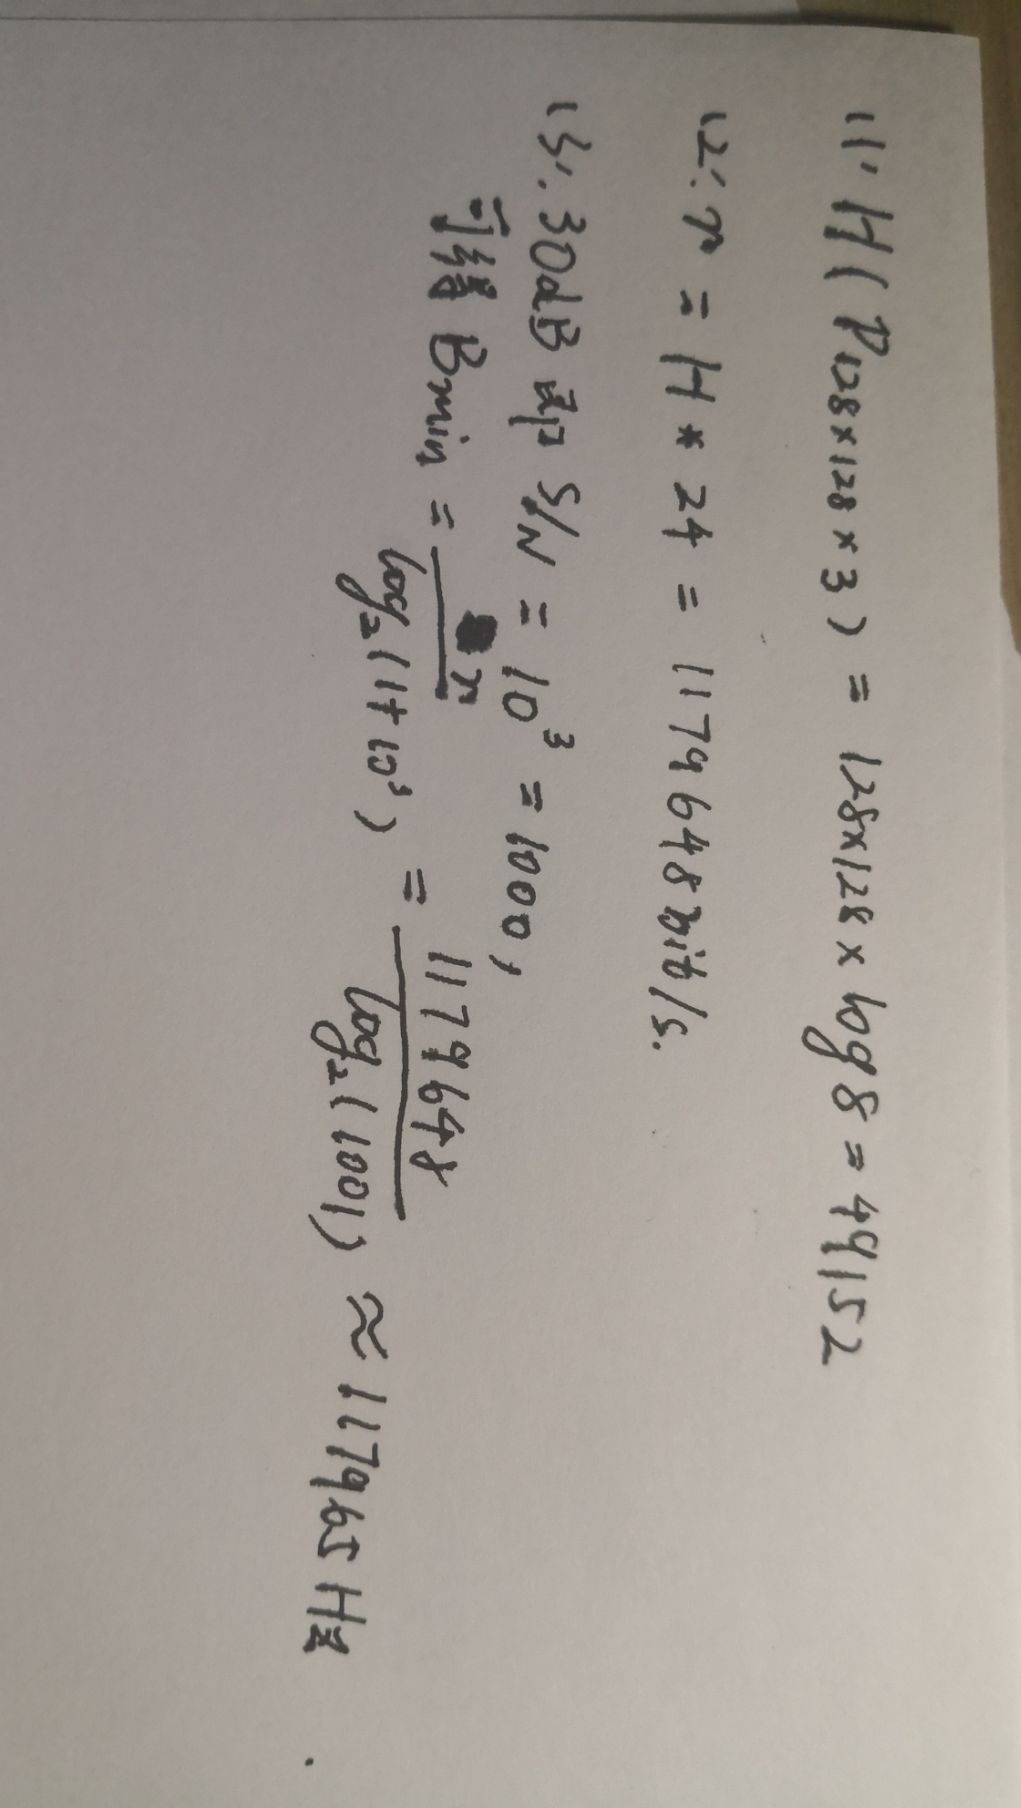 (1). H(P128×128×3) = 128×128×log8=49152
(2). r = H*24 = 1179648bit/s.
(3). 30dB 即 S/N = 10³ = 1000,
可得 Bmin = r / log₂(1+10³) = 1179648 / log₂(1001) ≈ 117965Hz